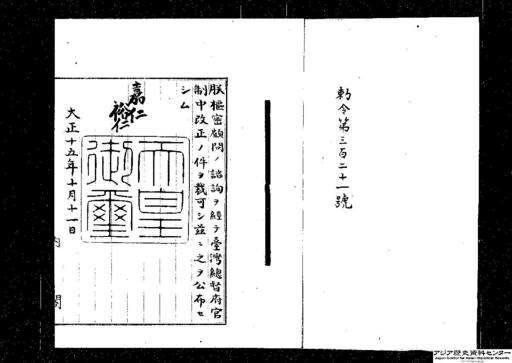 勅令第三百二十一號
朕樞密顧問ノ諮詢ヲ經テ臺灣總督府官
制中改正ノ件ヲ裁可シ茲ニ之ヲ公布セ
シム
嘉仁
裕仁
天皇
御璽
大正十五年十月十一日
内閣
アジア歴史資料センター
Japan Center for Asian Historical Records